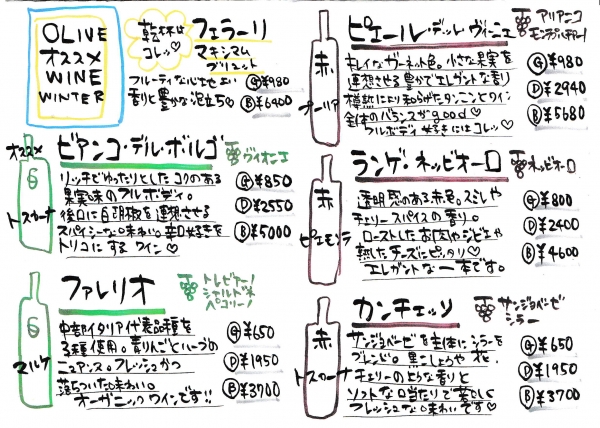 OLIVE
オススメ
WINE
WINTER
乾杯は
コレッ♡
フェラーリ
マキシマム
ブリュット
フルーティな心地よい
香りと豊かな泡立ち♡
Ⓖ¥980
Ⓑ¥6400
オススメ
白
トスカーナ
ビアンコ・デル・ボルゴ
ヴィオニエ
リッチでゆったりとしたコクのある
果実味のフルボディ。
後口に白胡椒を連想させる
スパイシーな味わい。辛口好きを
トリコにするワイン♡
Ⓖ¥850
Ⓓ¥2550
Ⓑ¥5000
白
マルケ
ファレリオ
トレビアーノ
シャルドネ
ペコリーノ
中部イタリア代表品種を
3種使用。青りんごとハーブの
ニュアンス。フレッシュかつ
落ちついた味わい。
オーガニックワインです!!
Ⓖ¥650
Ⓓ¥1950
Ⓑ¥3700
赤
ピエール・デッレ・ヴィーニェ
アリアニコ
キレイなガーネット色。小さな果実を
連想させる豊かでエレガントな香り
樽熟により和らがタンニンとワイン
全体のバランスがgood♡
フルボディ好きにはコレッ♡
Ⓖ¥980
Ⓓ¥2940
Ⓑ¥5680
赤
ピエモンテ
ランゲ・ネッビオーロ
ネッビオーロ
透明感のある赤色。スミレや
チェリースパイスの香り。
ローストしたお肉やジビエや
熟したチーズにピッタリ♡
エレガントな一本です。
Ⓖ¥800
Ⓓ¥2400
Ⓑ¥4600
赤
トスカーナ
カンチェッソ
サンジョベーゼ
シラー
サンジョベーゼを主体にシラーを
ブレンド。黒こしょうや花、
チェリーのような香りと
ソフトな口当たりで
フレッシュな味わいです♡
Ⓖ¥650
Ⓓ¥1950
Ⓑ¥3700